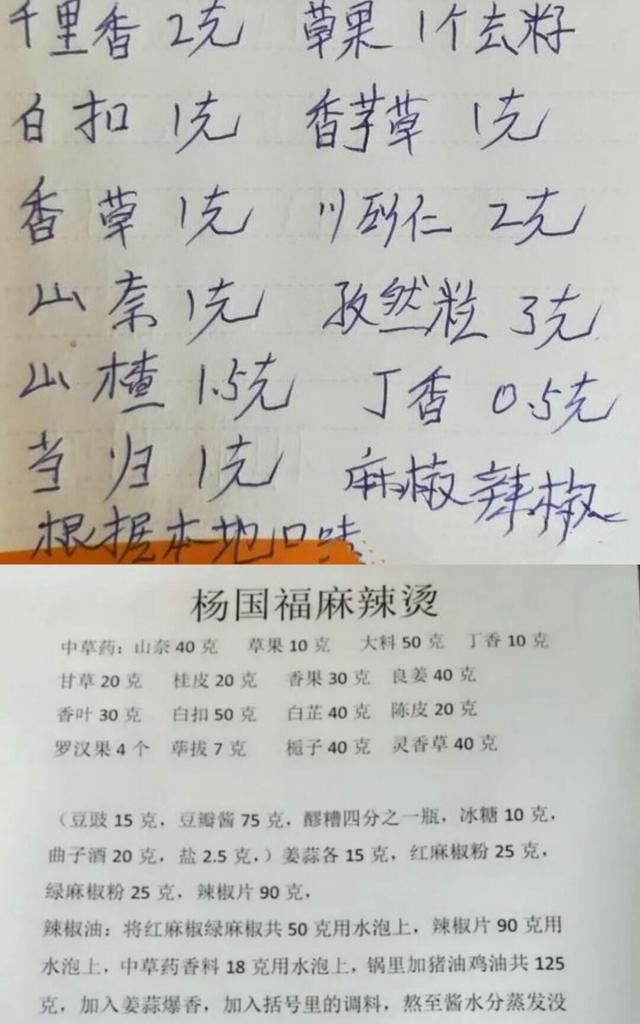 千里香 2克 草果 1个去籽
白扣 1克 香芧草 1克
香草 1克 川砂仁 2克
山奈 1克 孜然粒 3克
山楂 1.5克 丁香 0.5克
当归 1克 麻椒辣椒
根据本地口味
杨国福麻辣烫
中草药：山奈 40 克 草果 10 克 大料 50 克 丁香 10 克
甘草 20 克 桂皮 20 克 香果 30 克 良姜 40 克
香叶 30 克 白扣 50 克 白芷 40 克 陈皮 20 克
罗汉果 4 个 荜拔 7 克 栀子 40 克 灵香草 40 克
（豆豉 15 克，豆瓣酱 75 克，醪糟四分之一瓶，冰糖 10 克，
曲子酒 20 克，盐 2.5 克，）姜蒜各 15 克，红麻椒粉 25 克，
绿麻椒粉 25 克，辣椒片 90 克，
辣椒油：将红麻椒绿麻椒共 50 克用水泡上，辣椒片 90 克用
水泡上，中草药香料 18 克用水泡上，锅里加猪油鸡油共 125
克，加入姜蒜爆香，加入括号里的调料，熬至酱水分蒸发没